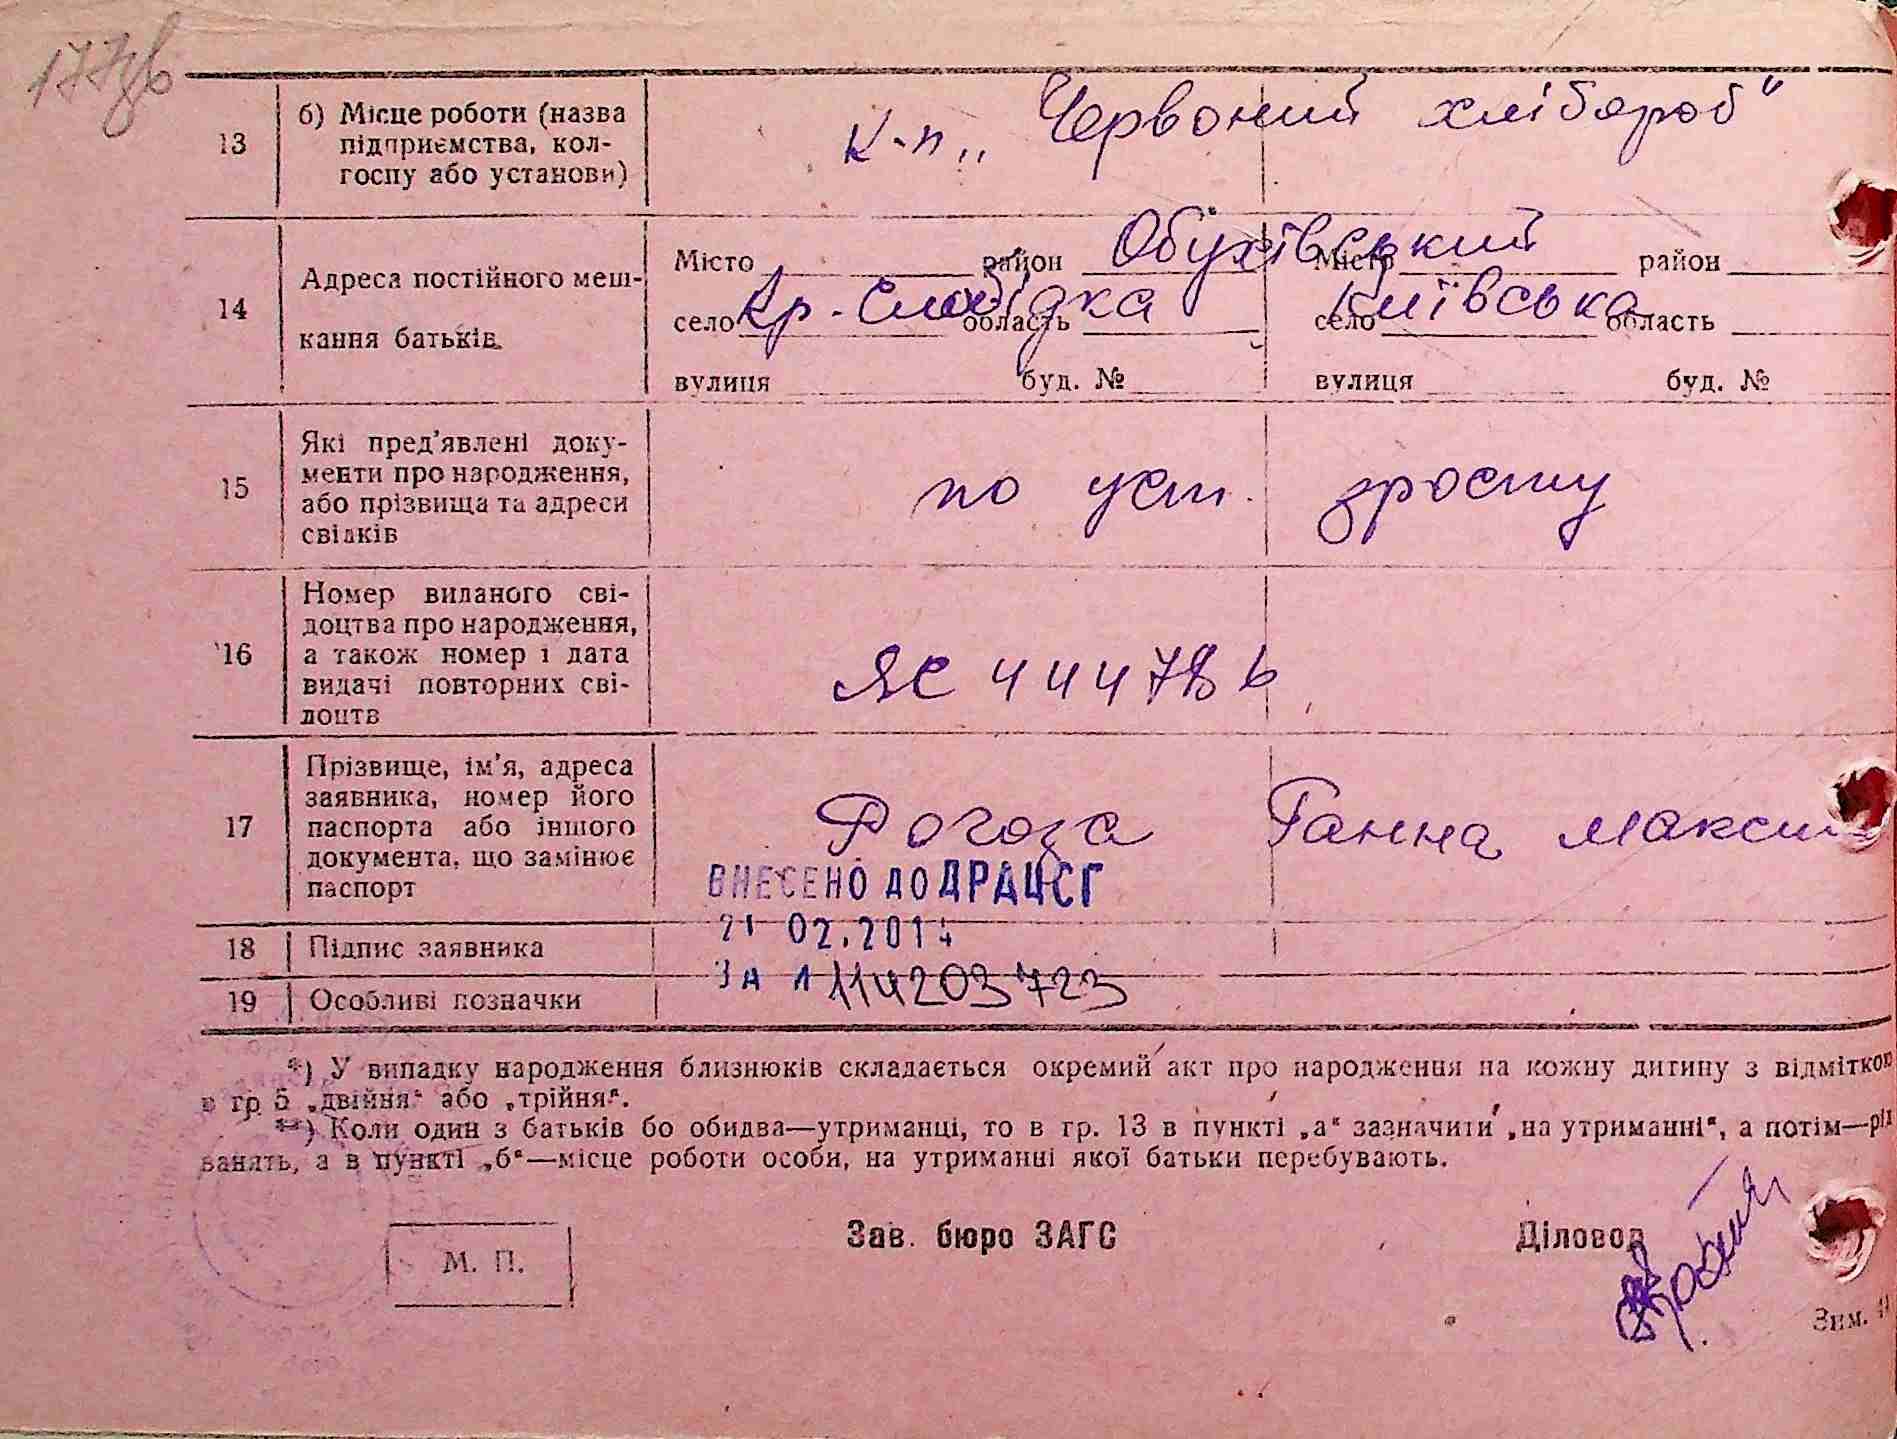 177зв
13 б) Місце роботи (назва
підприємства, кол-
госпу або установи)
к-п „Червоний хлібороб"
14 Адреса постійного меш-
кання батьків.
Місто район Обухівський Місто район
село Кр. Слобідка область село Київська область
вулиця буд. № вулиця буд. №
15 Які пред'явлені доку-
менти про народження,
або прізвища та адреси
свідків
по уст. зросту
16 Номер виданого сві-
доцтва про народження,
а також номер і дата
видачі повторних сві-
доцтв
ЯС
17 Прізвище, ім'я, адреса
заявника, номер його
паспорта або іншого
документа, що замінює
паспорт
Рогоза Ганна Максим
ВНЕСЕНО ДО ДРАЦСГ
21 02.2014
18 Підпис заявника
ЗА 114203723
19 Особливі позначки
*) У випадку народження близнюків складається окремий акт про народження на кожну дитину з відміткою
в гр 5 „двійня" або „трійня".
**) Коли один з батьків бо обидва—утриманці, то в гр. 13 в пункті „а" зазначити „на утриманні", а потім—рід
занять, а в пункті „б"—місце роботи особи, на утриманні якої батьки перебувають.
М. П.
Зав. бюро ЗАГС
Діловод
Зим.